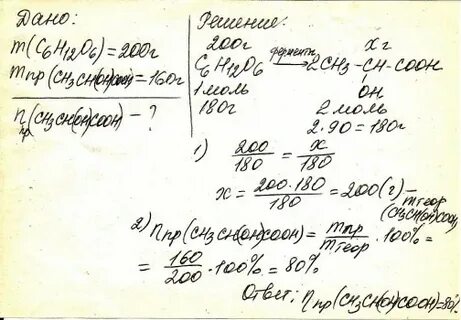 Дано:
m(C6H12O6)=200г
mпр(CH3CH(OH)COOH)=160г
ηпр(CH3CH(OH)COOH) - ?
Решение:
200г хг
C6H12O6 ферменты → 2CH3-CH-COOH
OH
1 моль 2 моль
180г 2·90=180г
1) 200/180 = x/180
x = 200·180/180 = 200(г) - mтеор
(CH3CH(OH)COOH)
2) ηпр(CH3CH(OH)COOH) = mпр/mтеор · 100% =
= 160/200 · 100% = 80%
Ответ: ηпр(CH3CH(OH)COOH)=80%